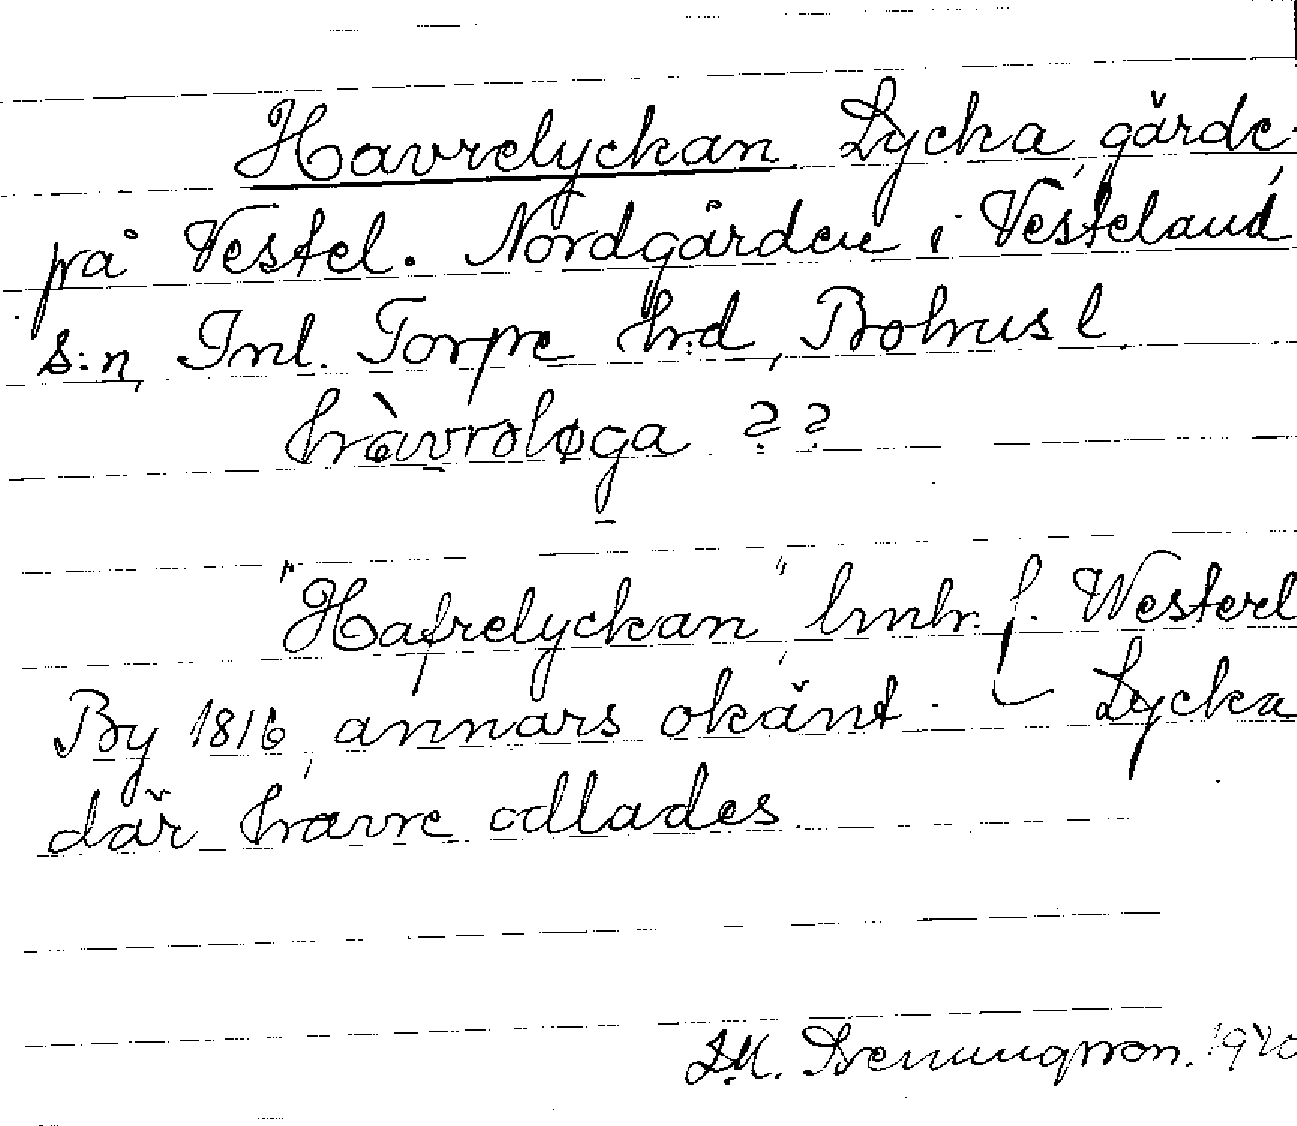 Havrelyckan. Lycka, gärde
på Vestel. Nordgården i Vesteland
s:n, Inl. Torpe hrd, Bohusl.
"Hafrelyckan" lmhr. f. Westerl
By 1816, annars okänt. Lycka
där havre odlades.